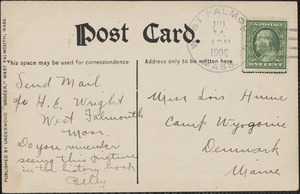 Post Card.
WEST FALMOUTH
1909
MASS.
ONE CENT
This space may be used for correspondence
This space for address only
PUBLISHED BY UNDERWOOD "BARGEE," WEST FALMOUTH, MASS.
Send Mail
c/o H. E. Wright
West Falmouth
Mass.
Do you remember
seeing this picture
in the history book
Betty
Miss Lois
Camp Wyogonic
Denmark
Maine